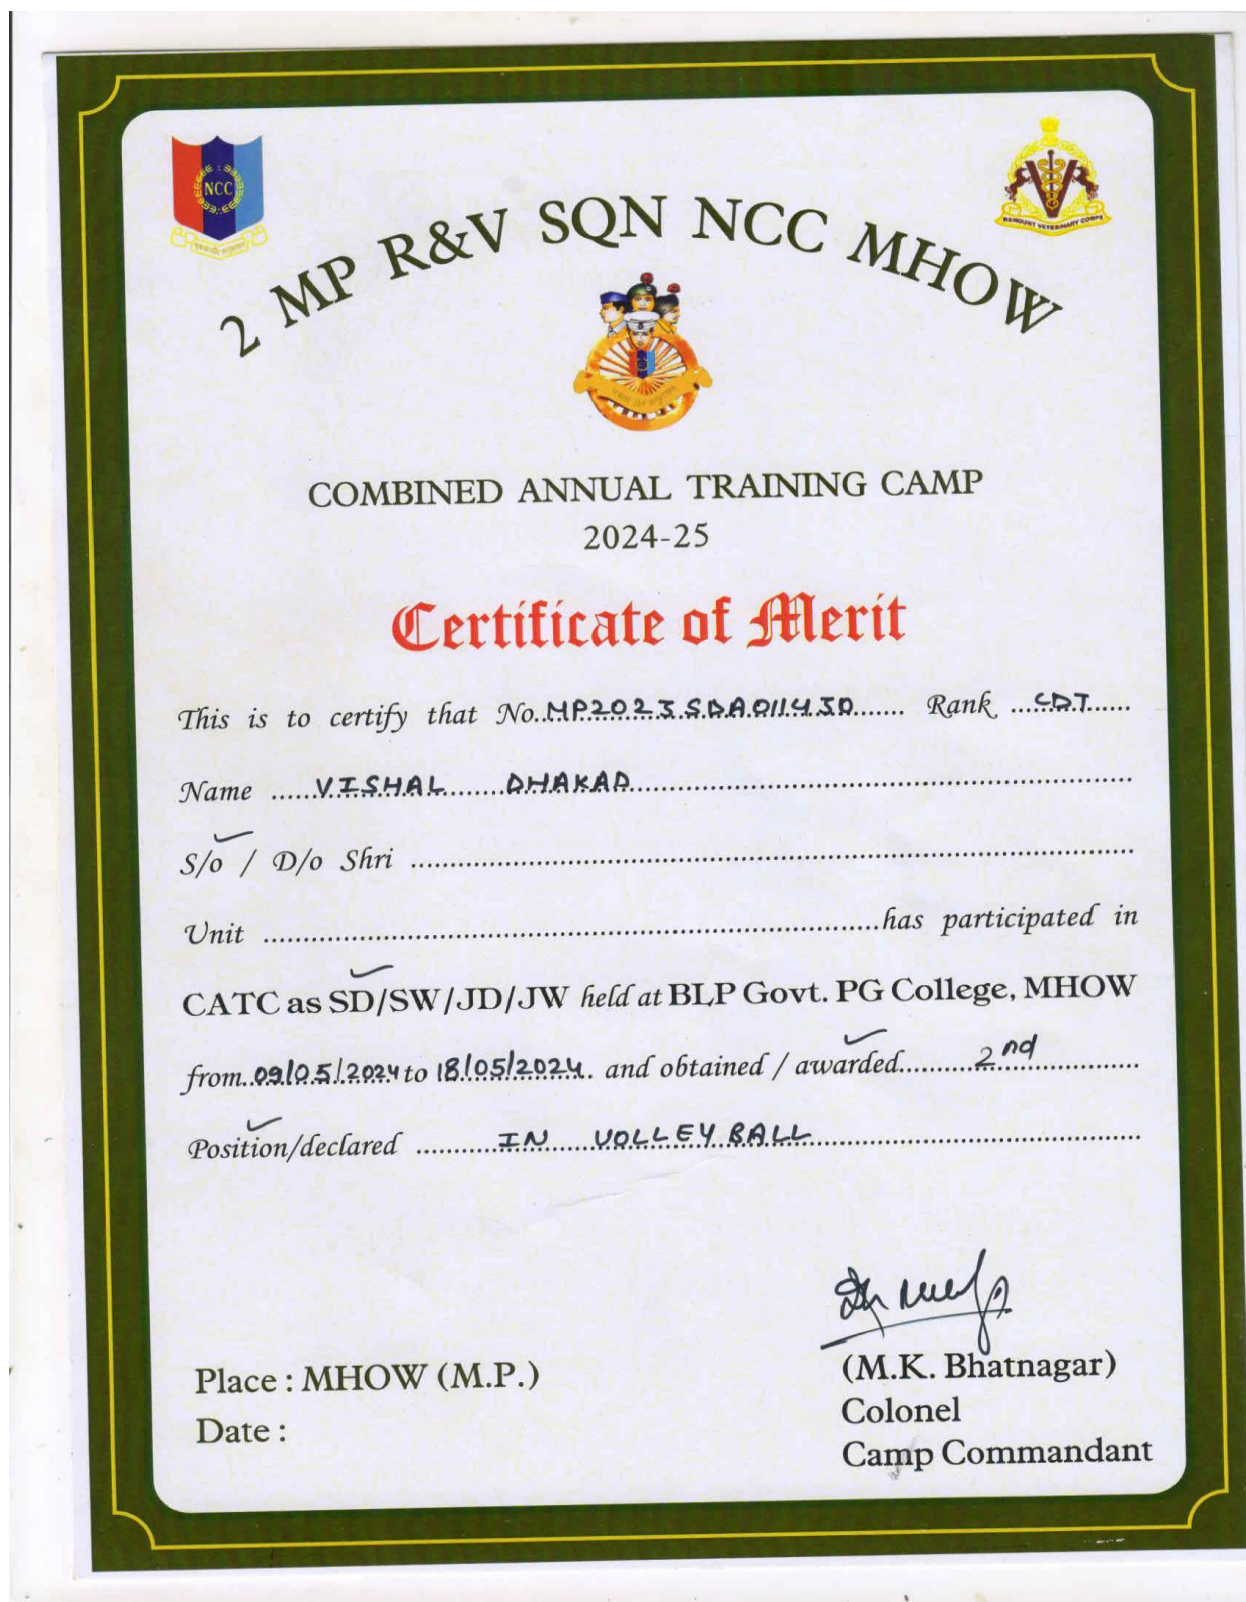 NCC
REMOUNT VETERINARY CORPS
2 MP R&V SQN NCC MHOW
COMBINED ANNUAL TRAINING CAMP
2024-25
Certificate of Merit
This is to certify that No..MP2023SDA011430....... Rank ...CDT......
Name ......VISHAL........DHAKAD................................................................
S/o / D/o Shri ................................................................................................
Unit ................................................................................has participated in
CATC as SD/SW/JD/JW held at BLP Govt. PG College, MHOW
from..09/05/2024 to 18/05/2024. and obtained / awarded..........2nd..............
Position/declared ...........IN......VOLLEYBALL...........................................
(M.K. Bhatnagar)
Place : MHOW (M.P.)
Colonel
Date :
Camp Commandant